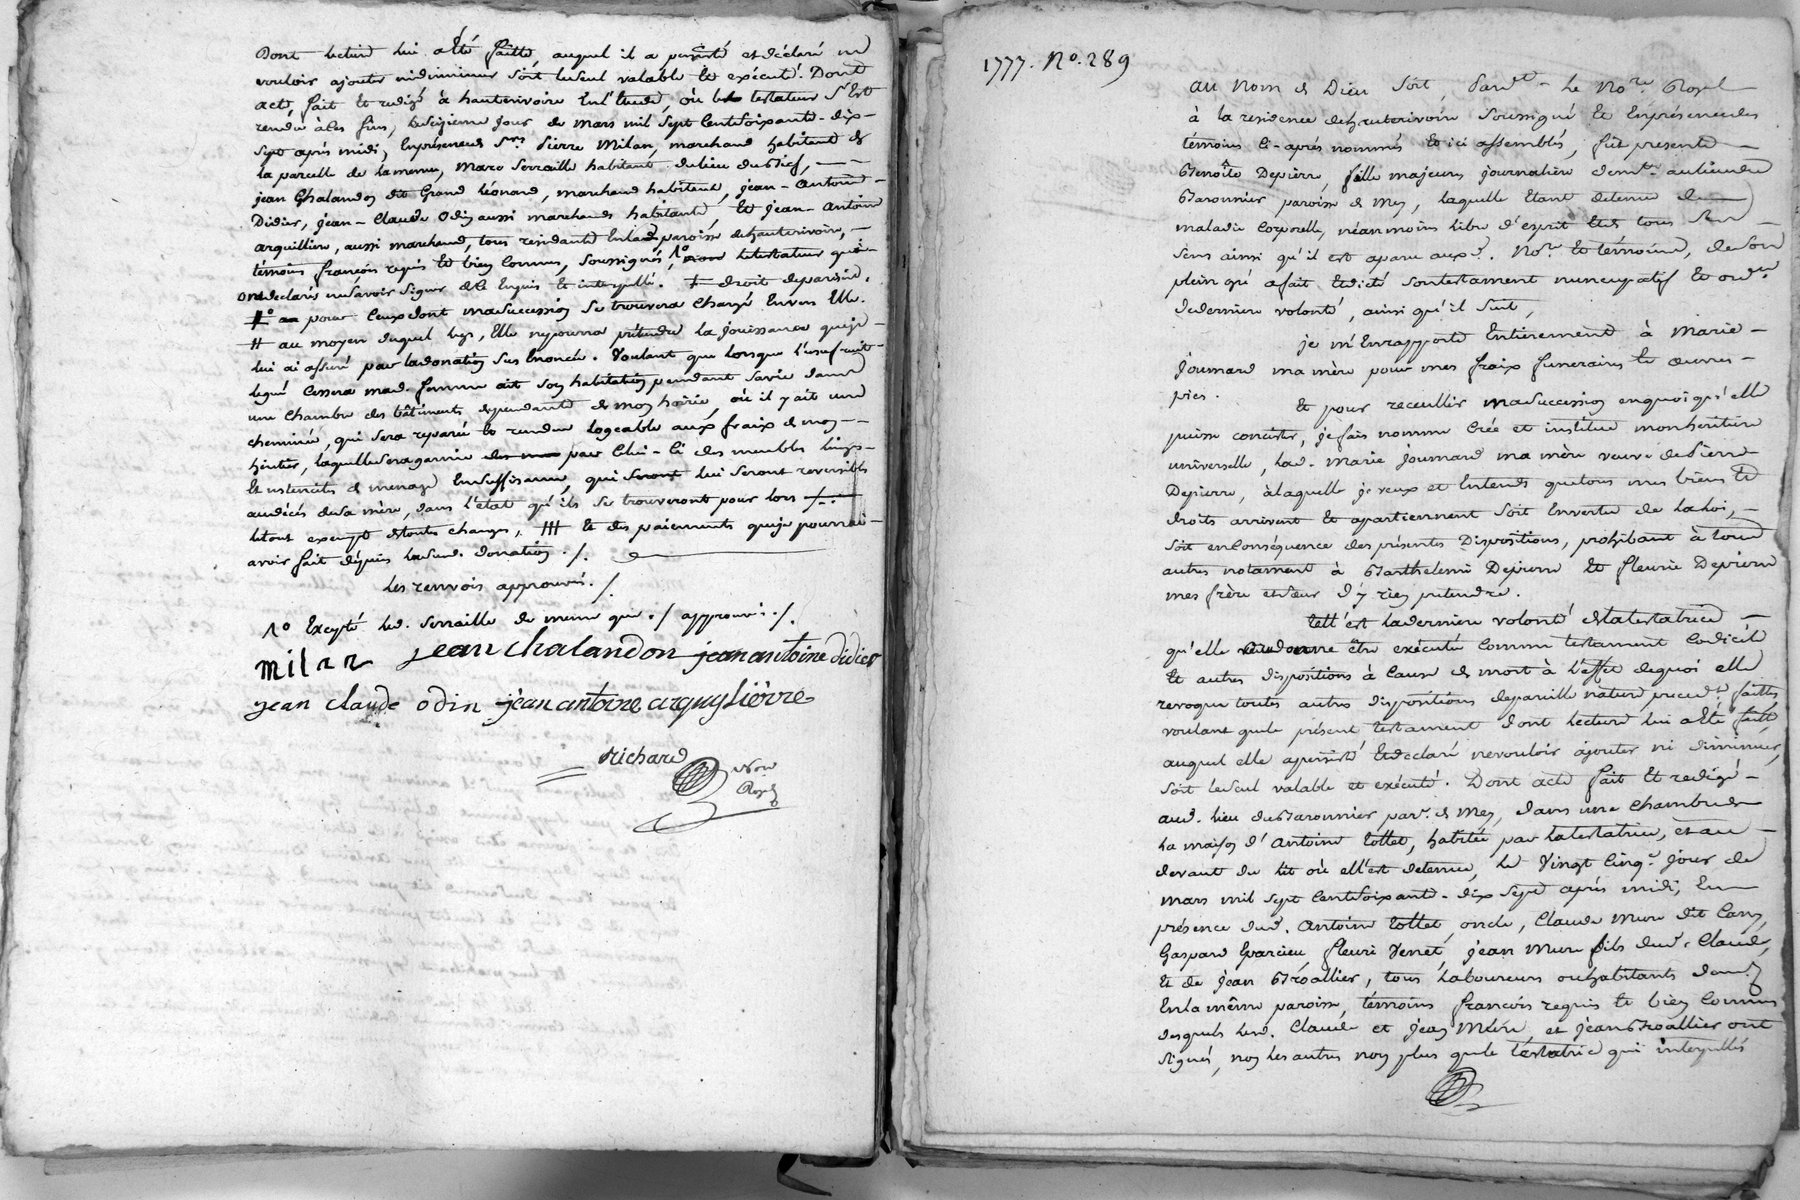 Dont lecture lui a été faitte, auquel il a persisté et déclaré ne
vouloir ajouter ni diminuer soit le seul valable et exécuté. Dont
acte fait et redigé à hauterivoire en l'Etude, où le testateur s'est
rendu à ces fins, le seizieme jour de mars mil sept cent soixante-dix-
sept après midi, en présence de Srs pierre Milan, marchand habitant de
la parcelle de lamenue, Marc Serraille habitant du lieu du Fief,
jean Chalandon dit Grand Léonard, marchand habitant, jean-antoine
Didier, jean-Claude Odin aussi marchands habitants, et jean-antoine
arquilliere, aussi marchand, tous residants en lad. paroisse de hauterivoire,
témoins françois requis et bien connus, soussignés, 1º le testateur qui
ont declarés ne savoir signer de ce enquis et interpellé. droit de parisins,
pour ceux dont ma succession se trouvera chargé envers elle.
# au moyen duquel legs, elle ne pourra prétendre la jouissance que je
lui ai assuré par la donation sus Enoncée. Voulant que lorsque l'usufruit
legué cessera mad. femme ait son habitation pendant sa vie dans
une chambre des bâtiments dependants de mon hoirie, où il y ait une
cheminée, qui sera reparée et rendue logeable aux fraix de mon
héritier, laquelle sera garnie par Celui-Ci des meubles linges
et ustenciles de menage en suffisance, qui lui seront reversibles
au décés de sa mère, dans l'état qu'ils se trouveront pour lors
le tout exempt de toutes charges, ### Et des paiements que je pourrai
avoir fait dépuis lad. donation ./.
Les renvois approuvés ./
1º Excepté led. Serraille de meme que ./ approuvé ./.
milan jean chalandon jean antoine didier
jean claude odin jean antoine arquglièrre
Richard
Nore
Royal
1777. No. 289
au Nom de Dieu soit, Pardt le Nore Royal
à la residence de hauterivoire soussigné et en présence des
témoins ci-après nommés et ici assemblés, fût presente
Benoîte Depierre, fille majeure journaliere demte au lieu du
Baronnier paroisse de Mey, laquelle étant detenue de
maladie corporelle, néanmoins libre d'esprit et de tous ses
sens ainsi qu'il est aparu auxd. Nore et témoins, de son
plein gré a fait et dicté son testament nuncupatif et ordce
de derniere volonté, ainsi qu'il suit,
je m'en rapporte entierement à Marie
Joumard ma mère pour mes fraix funeraires et œuvres
pies.
Et pour receullir ma succession en quoi qu'elle
puisse consister, je fais nomme crée et institue mon héritiere
universelle, lad. Marie Joumard ma mère veuve de Pierre
Depierre, à laquelle je veux et entends que tous mes biens et
droits arrivent et apartiennent soit en vertu de la loi,
soit en conséquence des présentes Dispositions, prohibant à tous
autres notament à Barthelemi Depierre et fleurie Depierre
mes frère et sœur d'y rien pretendre.
Tell'est la derniere volonté de la testatrice
qu'elle être exécutée comme testament codicil
et autres dispositions à cause de mort à l'effet dequoi elle
revoque toutes autres dispositions de pareille nature precedt faittes
voulant que le présent testament dont lecture lui a été faitte
auquel elle a persisté et declaré ne vouloir ajouter ni diminuer,
soit le seul valable et exécuté. Dont acte fait et redigé
aud. lieu du Baronnier par. de Mey, dans une chambre de
la maison d'antoine Collet, habitée par la testatrice, et au
devant du lit où ell'est detenue, le Vingt Cinqe jour de
mars mil sept cent soixante-dix sept après midi, En
présence dud. Antoine Collet, oncle, Claude Mure dit Cany,
Gaspard Evarcieu, fleuri Venet, jean Mure fils dud. Claude,
et de jean Broallier, tous laboureurs ou habitants demt
en la même paroisse, témoins françois requis et bien connus
desquels led. Claude et jean Mure et jean Broallier ont
signés, non les autres non plus que la testatrice qui interpellés